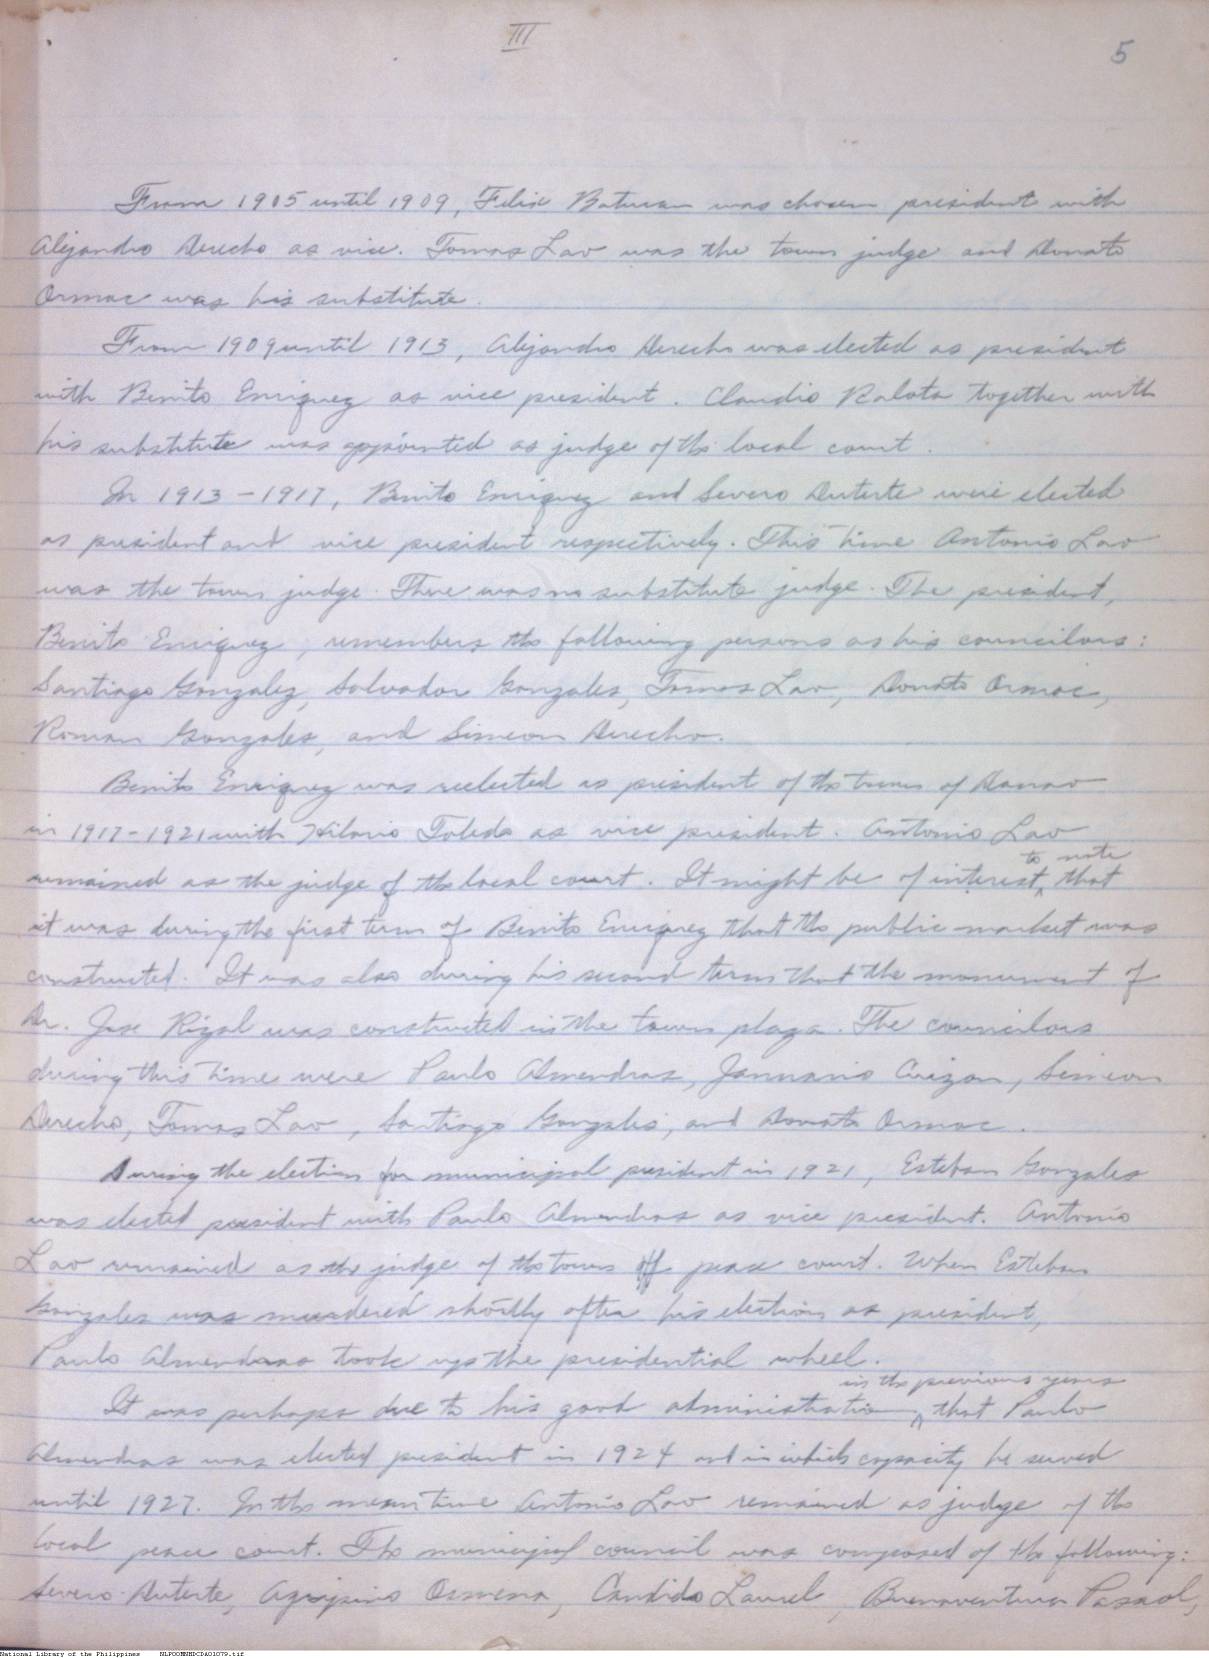 III
5
From 1905 until 1909, Felix Batucan was chosen president with
Alejandro Derecho as vice. Tomas Lao was the town judge and Donato
Ormac was his substitute.
From 1909 until 1913, Alejandro Derecho was elected as president
with Benito Enriquez as vice president. Claudio Ralota together with
his substitute was appointed as judge of the local court.
In 1913-1917, Benito Enriquez and Severo Duterte were elected
as president and vice president respectively. This time Antonio Lao
was the town judge. There was no substitute judge. The president,
Benito Enriquez, remembers the following persons as his councilors:
Santiago Gonzalez, Salvador Gonzales, Tomas Lao, Donato Ormoc,
Roman Gonzales, and Simeon Derecho.
Benito Enriquez was reelected as president of the town of Danao
in 1917-1921 with Hilario Toledo as vice president. Antonio Lao
remained as the judge of the local court. It might be of interest to note that
it was during the first term of Benito Enriquez that the public market was
constructed. It was also during his second term that the monument of
Dr. Jose Rizal was constructed in the town plaza. The councilors
during this time were Paulo Almendras, Januario Avizon, Simeon
Derecho, Tomas Lao, Santiago Gonzales, and Donato Ormac.
During the election for municipal president in 1921, Esteban Gonzales
was elected president with Paulo Almendras as vice president. Antonio
Lao remained as the judge of the town peace court. When Esteban
Gonzales was murdered shortly after his election as president,
Paulo Almendras took up the presidential wheel.
It was perhaps due to his good administration in the previous years that Paulo
Almendras was elected president in 1924 and in which capacity he served
until 1927. In the mean time Antonio Lao remained as judge of the
local peace court. The municipal council was composed of the following:
Severo Duterte, Agripino Osmena, Candido Laurel, Buenaventura Pasaol,
National Library of the Philippines NLPOOMNHDCDA01079.tif